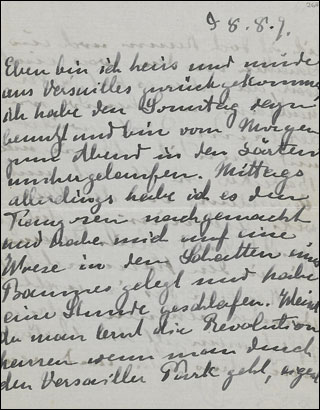 8. 8. 7.
Eben bin ich heiss und müde
aus Versailles zurückgekommen
ich habe den Sonntag dazu
benutzt und bin vom Morgen
zum Abend in den Gärten
umhergelaufen. Mittags
allerdings habe ich es den
Franzosen nachgemacht
und habe mich auf eine
Wiese in den Schatten eines
Baumes gelegt und habe
eine Stunde geschlafen.
du man lernt die Revolution
wenn man durch
den Versailler Park geht,